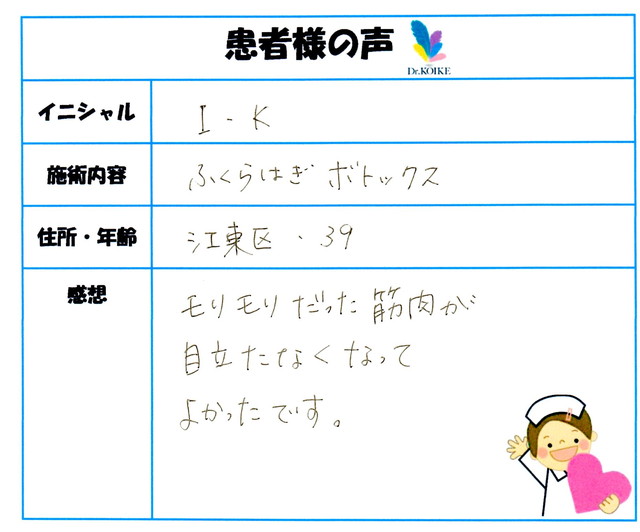 患者様の声
Dr.KOIKE
イニシャル I - K
施術内容 ふくらはぎ ボトックス
住所・年齢 江東区 ・ 39
感想 モリモリだった筋肉が
目立たなくなって
よかったです。